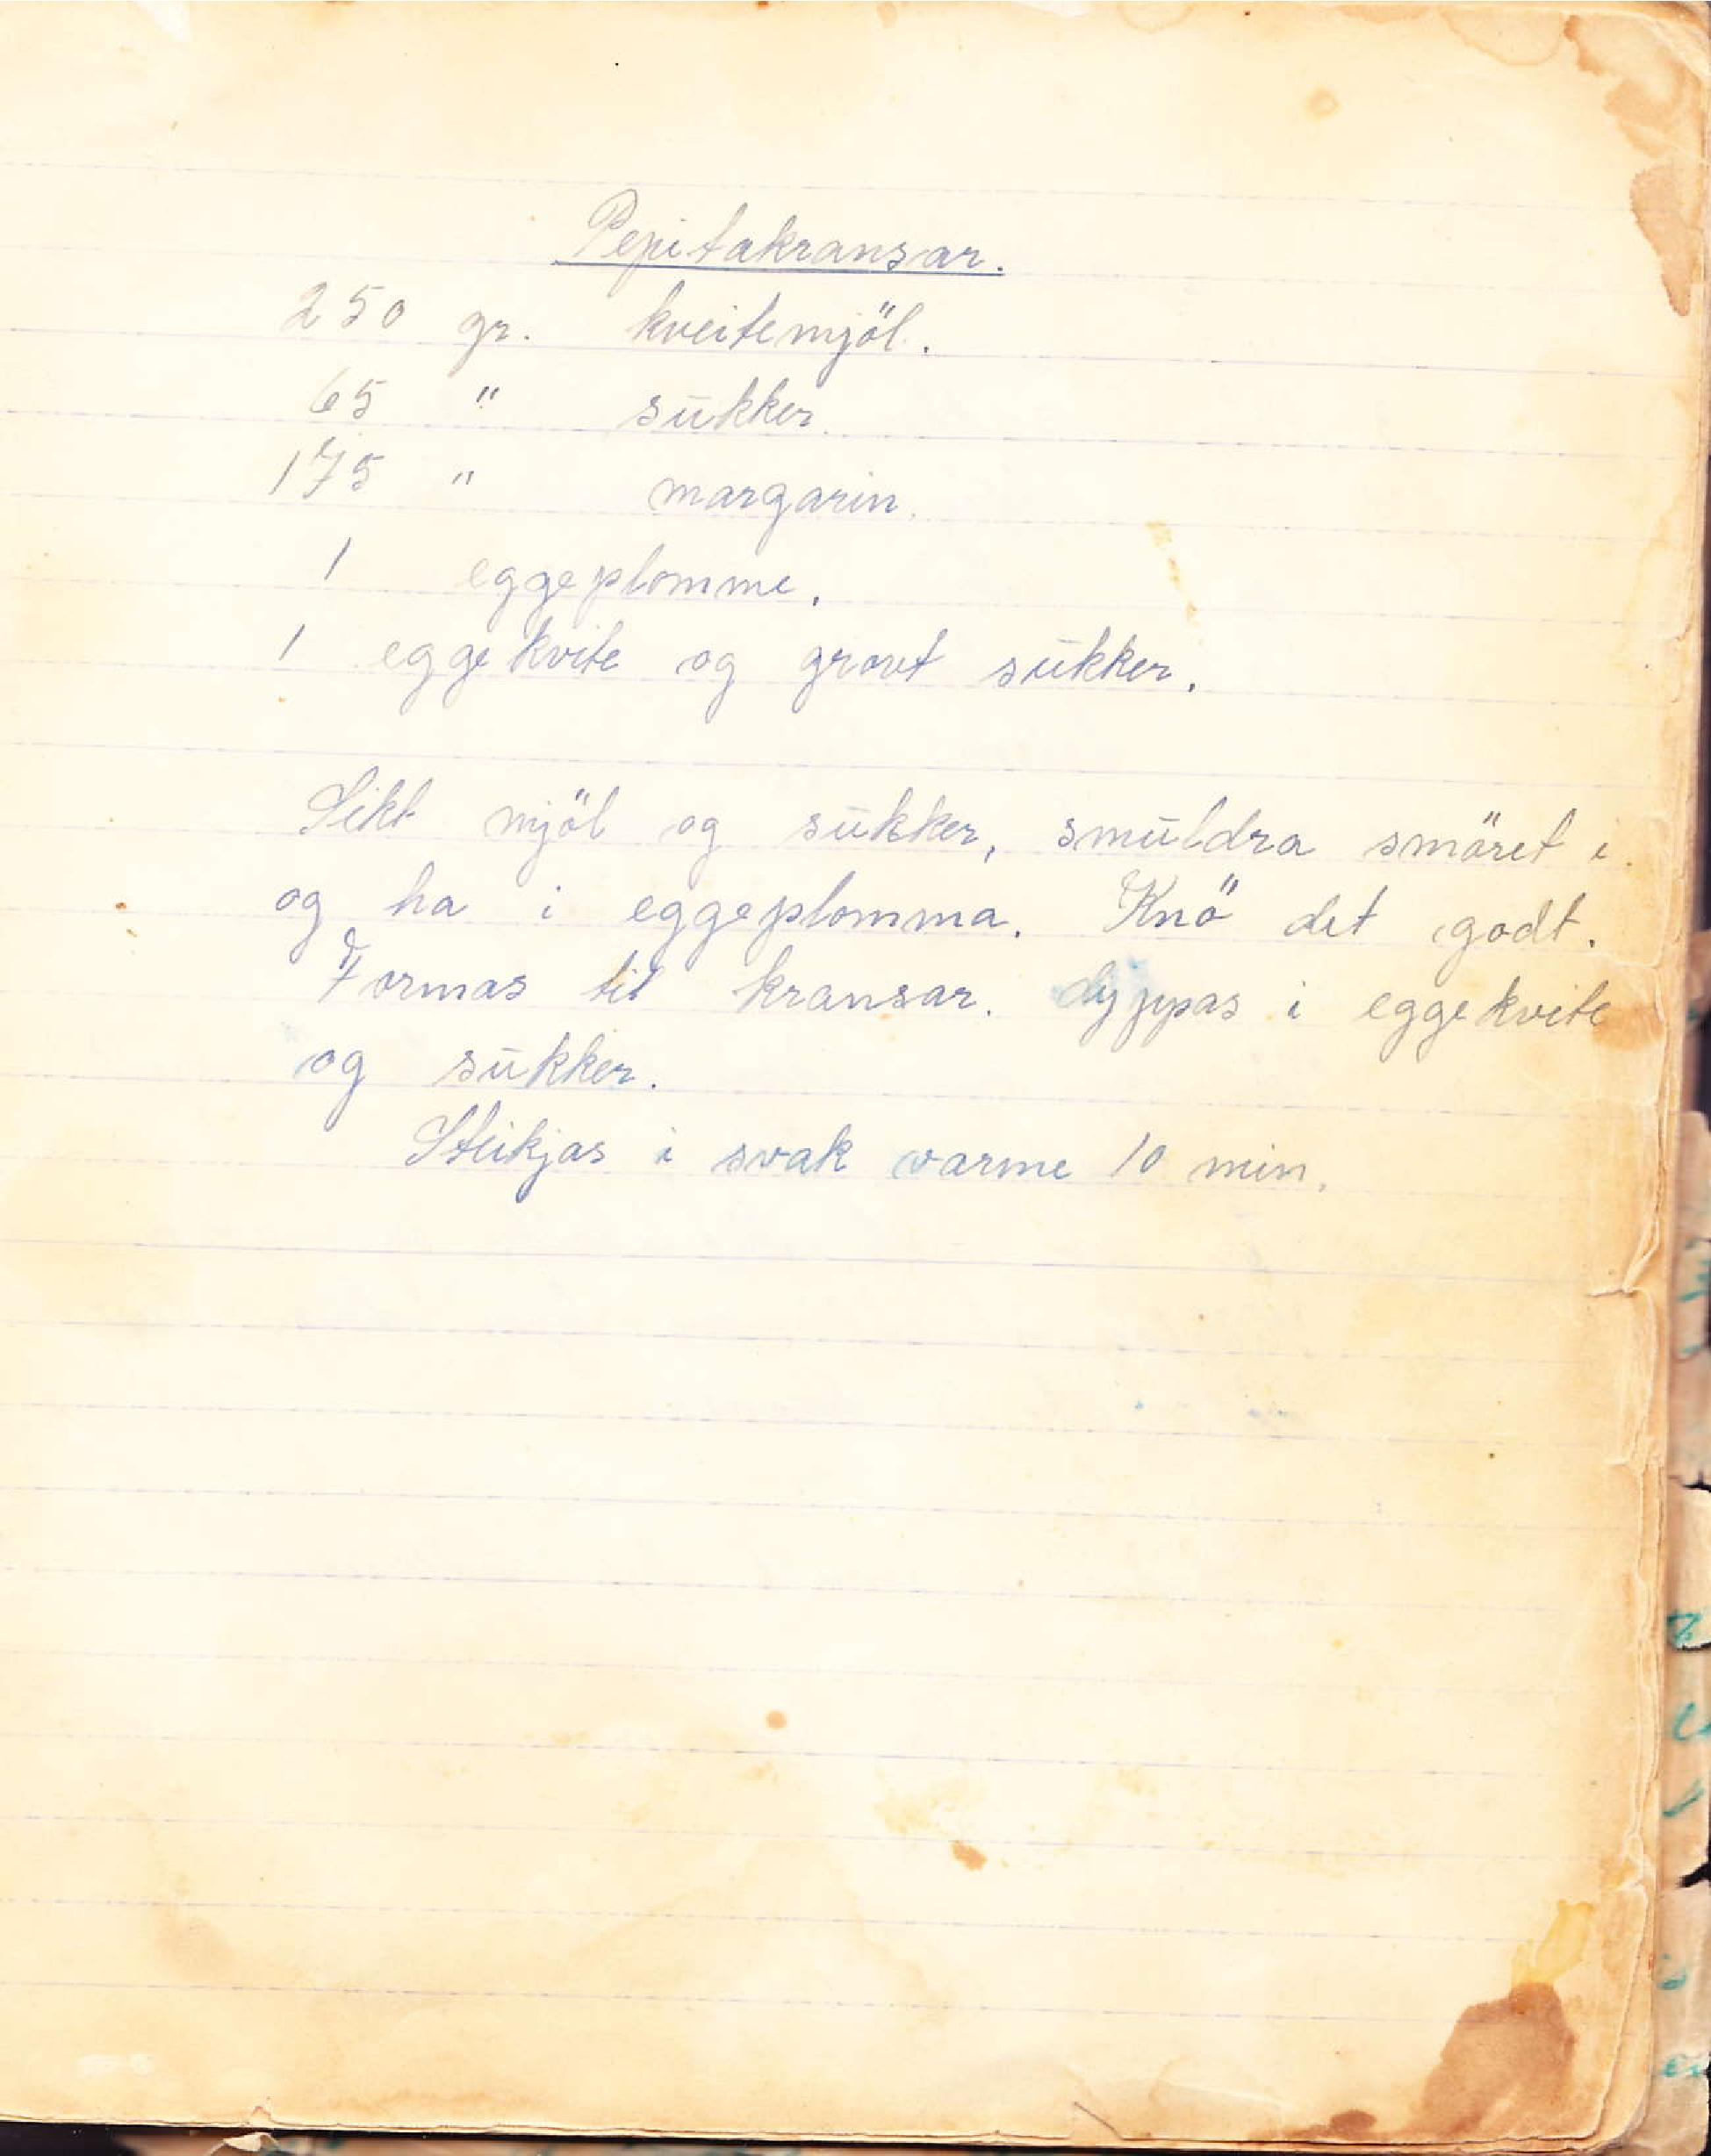 Pepitakransar.
250 gr. kveitemjöl.
65 " sukker.
175 " margarin.
1 eggeplomme.
1 eggekvite og grovt sukker.
Sikt mjöl og sukker, smuldra smöret i
og ha i eggeplomma. Knö det godt.
Formas til kransar. dyppas i eggekvite
og sukker.
Steikjas i svak varme 10 min.